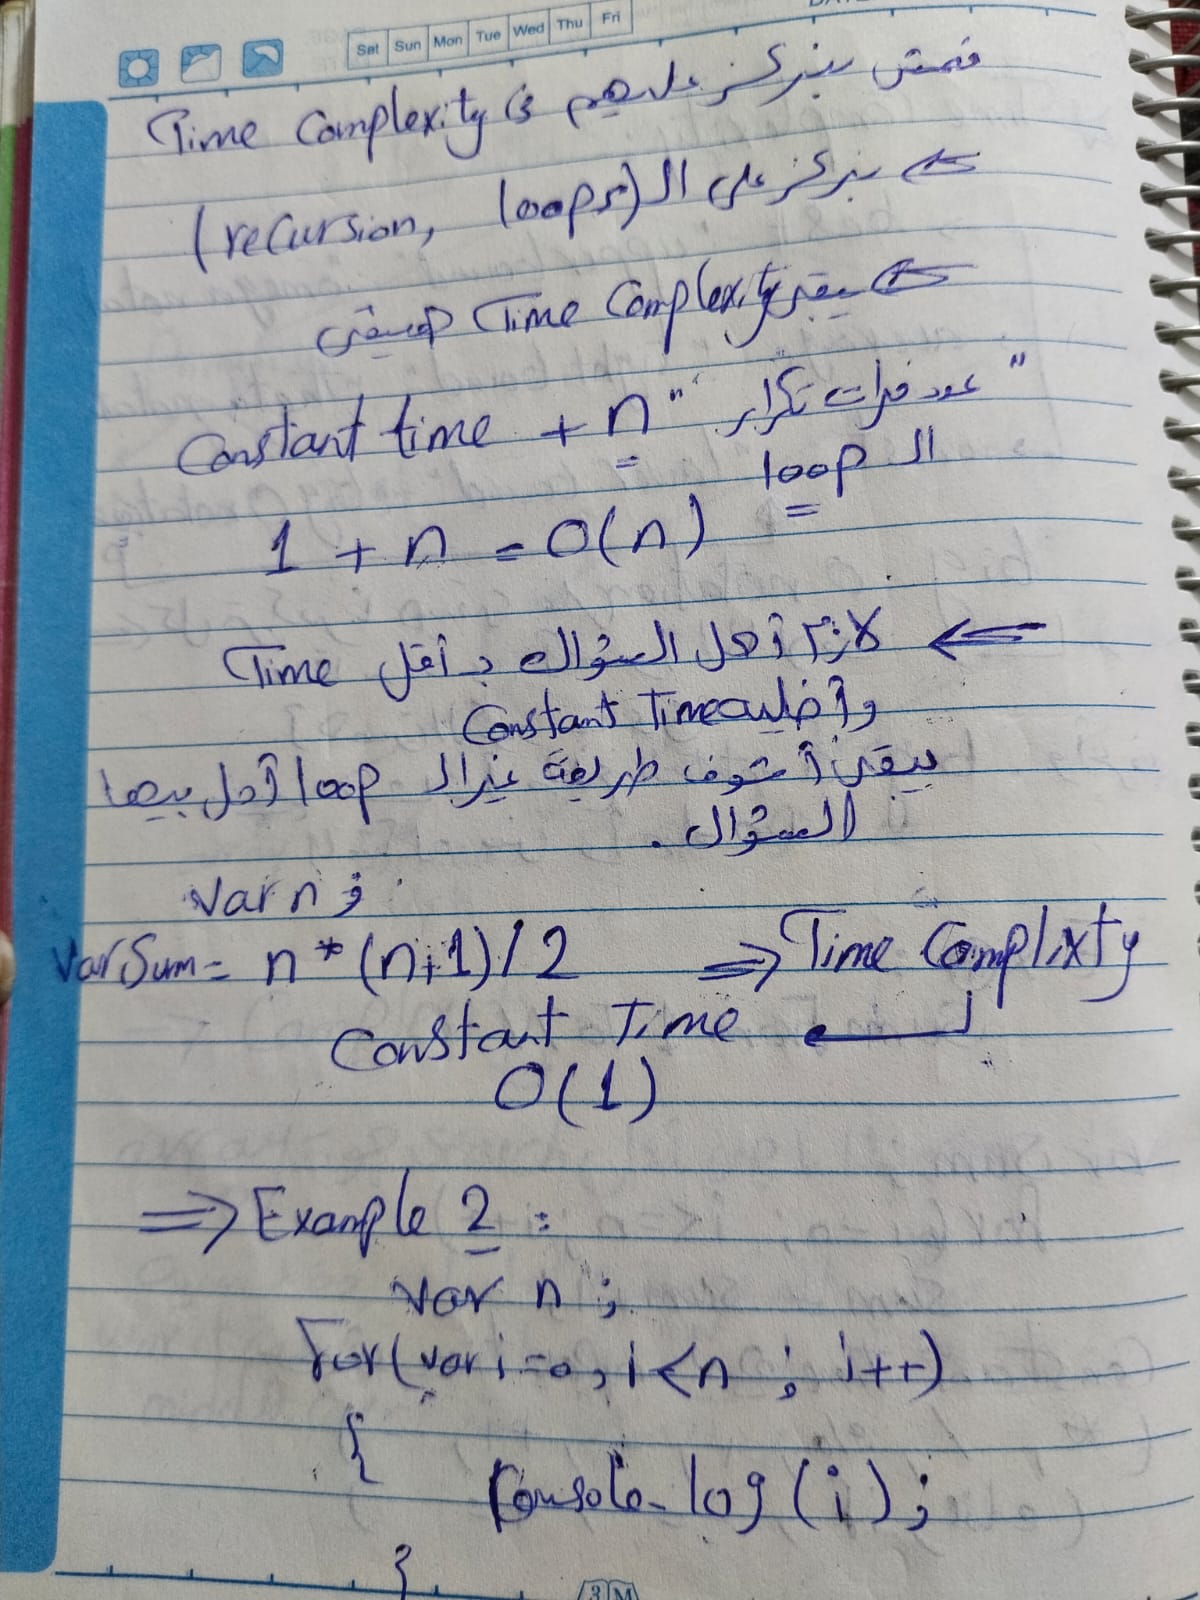 Sat Sun Mon Tue Wed Thu Fri
فمش بنركز عليهم في Time Complexity
بنركز على ال (recursion, loops)
يبقى Time Complexity هيبقى
Constant time + n " عدد مرات تكرار
ال loop "
1 + n = O(n)
لازم أحل السؤال بـ أقل Time
وأخليه Constant Time
يبقى أشوف طريقة غير ال loop أحل بيها
السؤال .
Var n ;
Var Sum = n * (n+1) / 2 => Time Complixty
Constant Time
O(1)
=> Example 2 :
Var n ;
For(var i=0, i<n ; i++)
{
Console.log(i);
}
3M